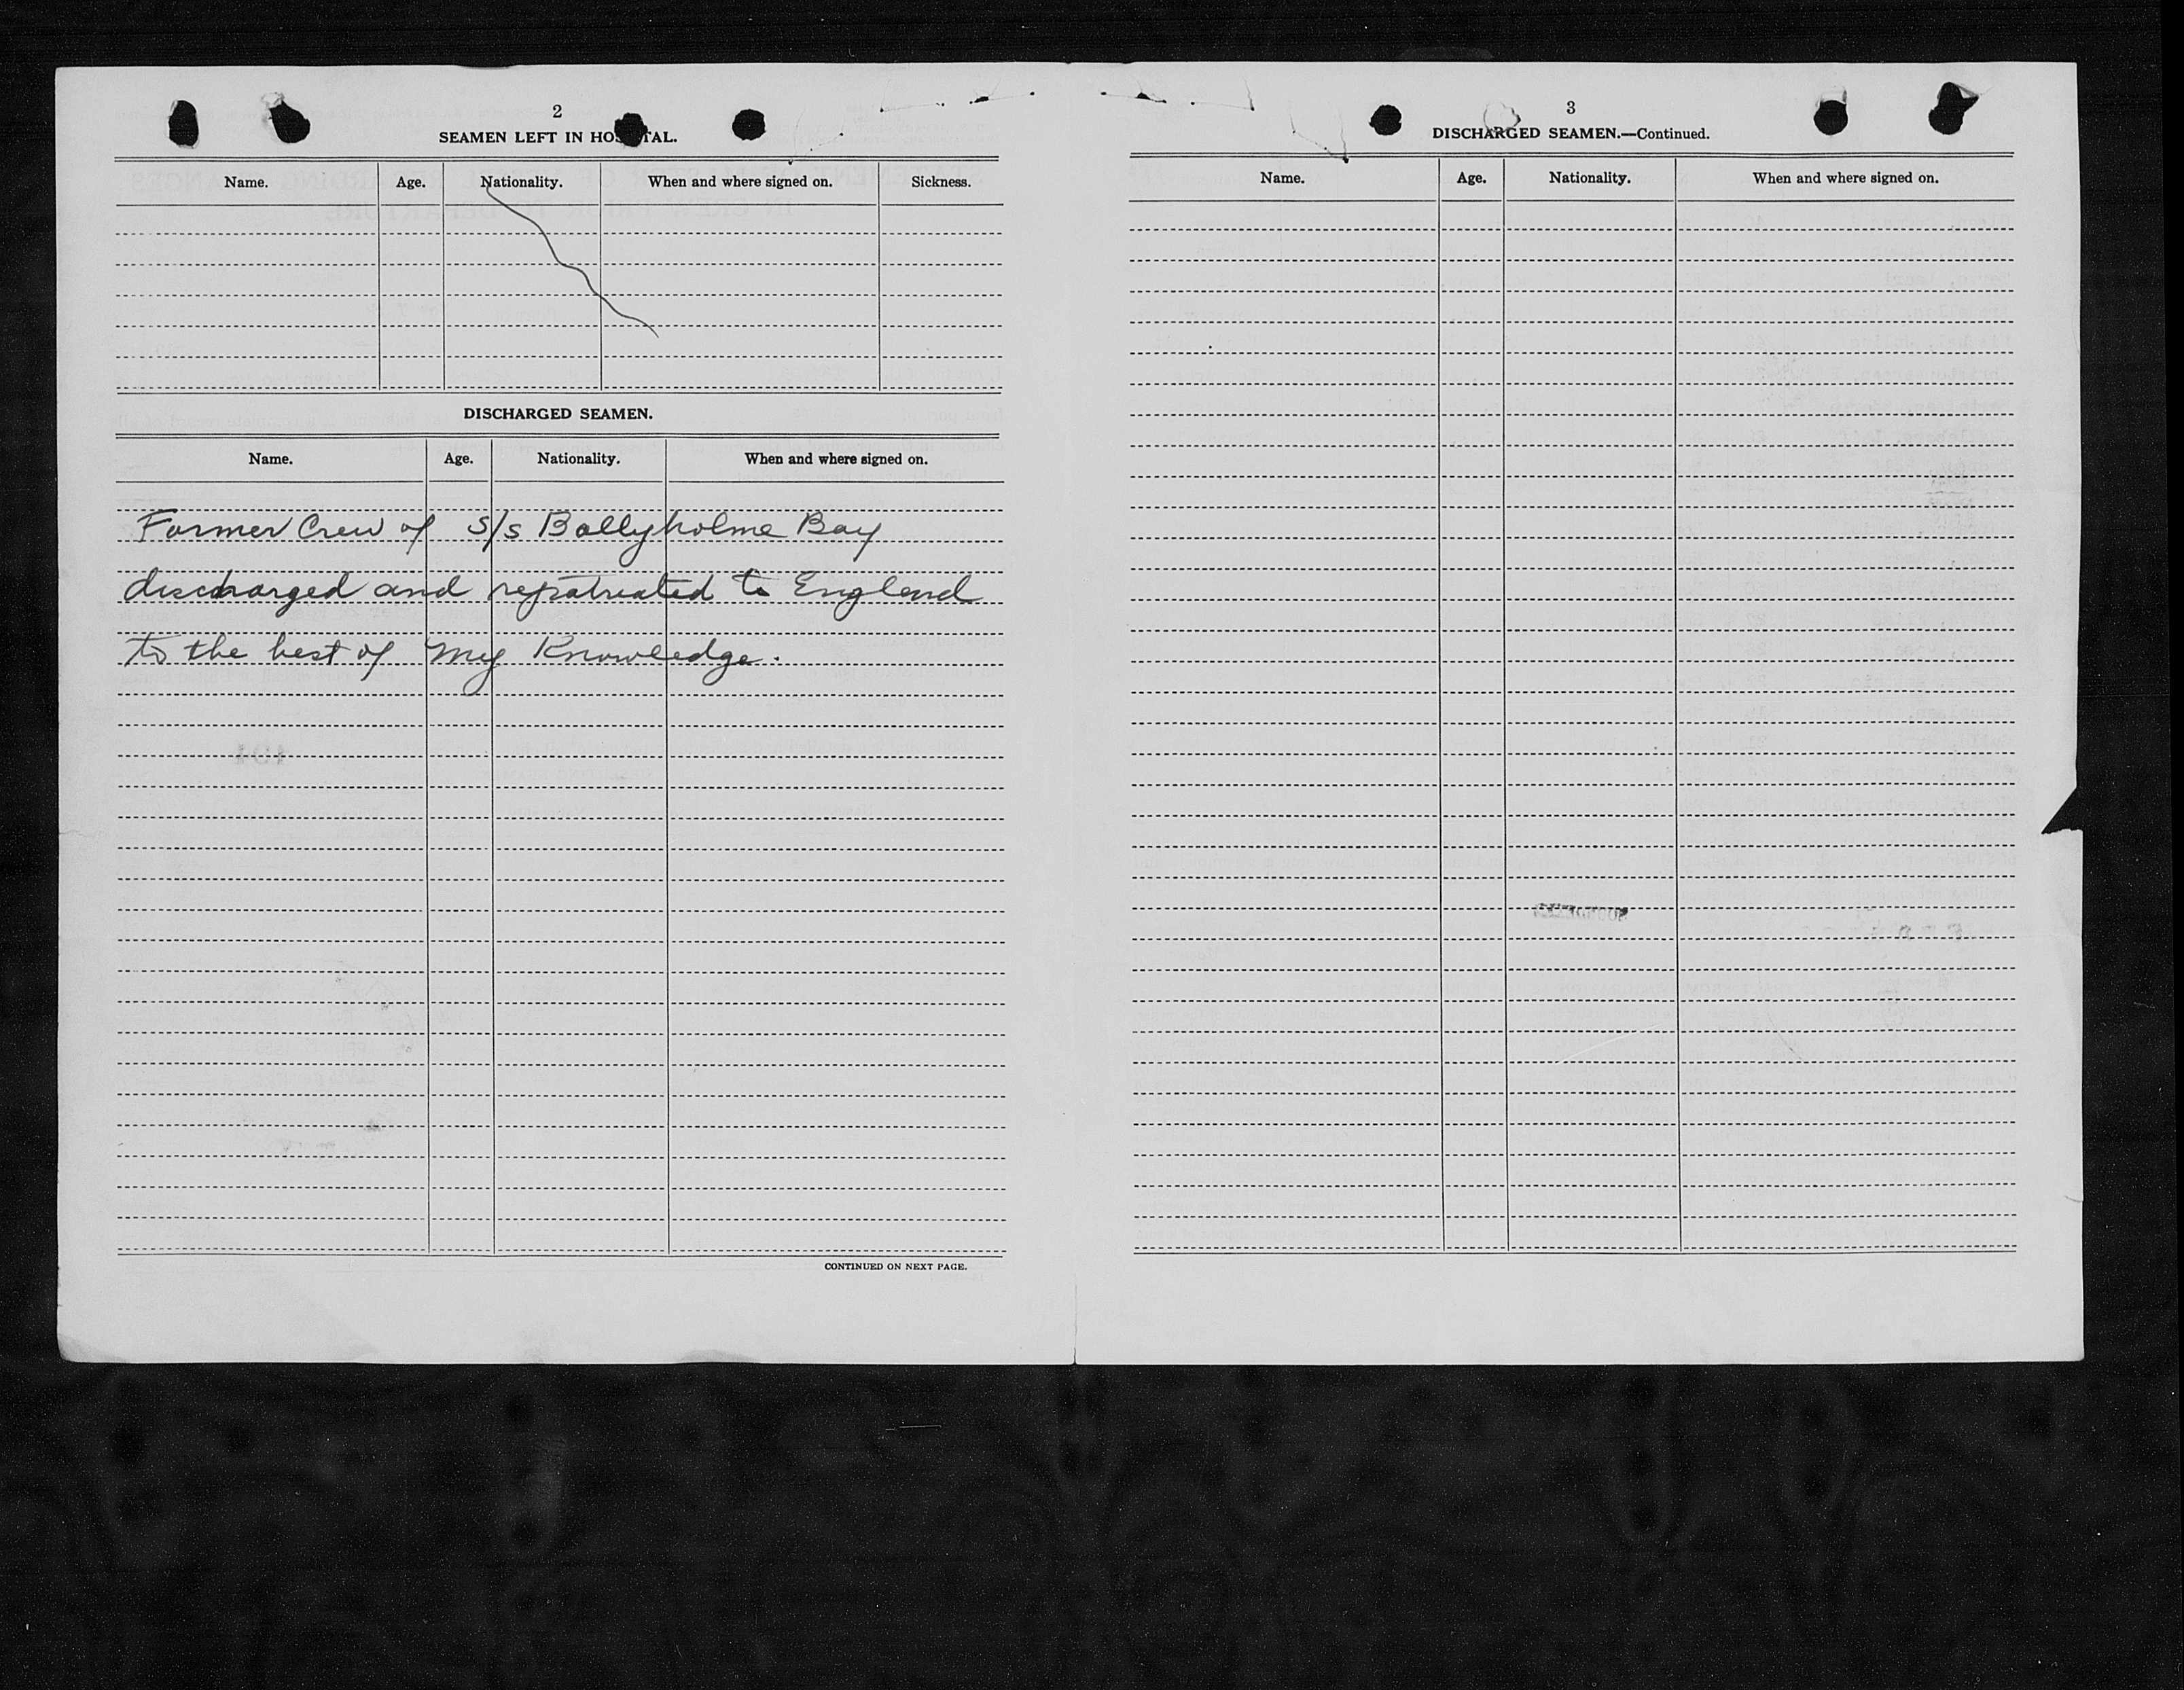 2
SEAMEN LEFT IN HOSPITAL.
Name. Age. Nationality. When and where signed on. Sickness.
DISCHARGED SEAMEN.
Name. Age. Nationality. When and where signed on.
Former Crew of s/s Ballyholme Bay
discharged and repatriated to England
to the best of my Knowledge.
CONTINUED ON NEXT PAGE.
3
DISCHARGED SEAMEN.—Continued.
Name. Age. Nationality. When and where signed on.